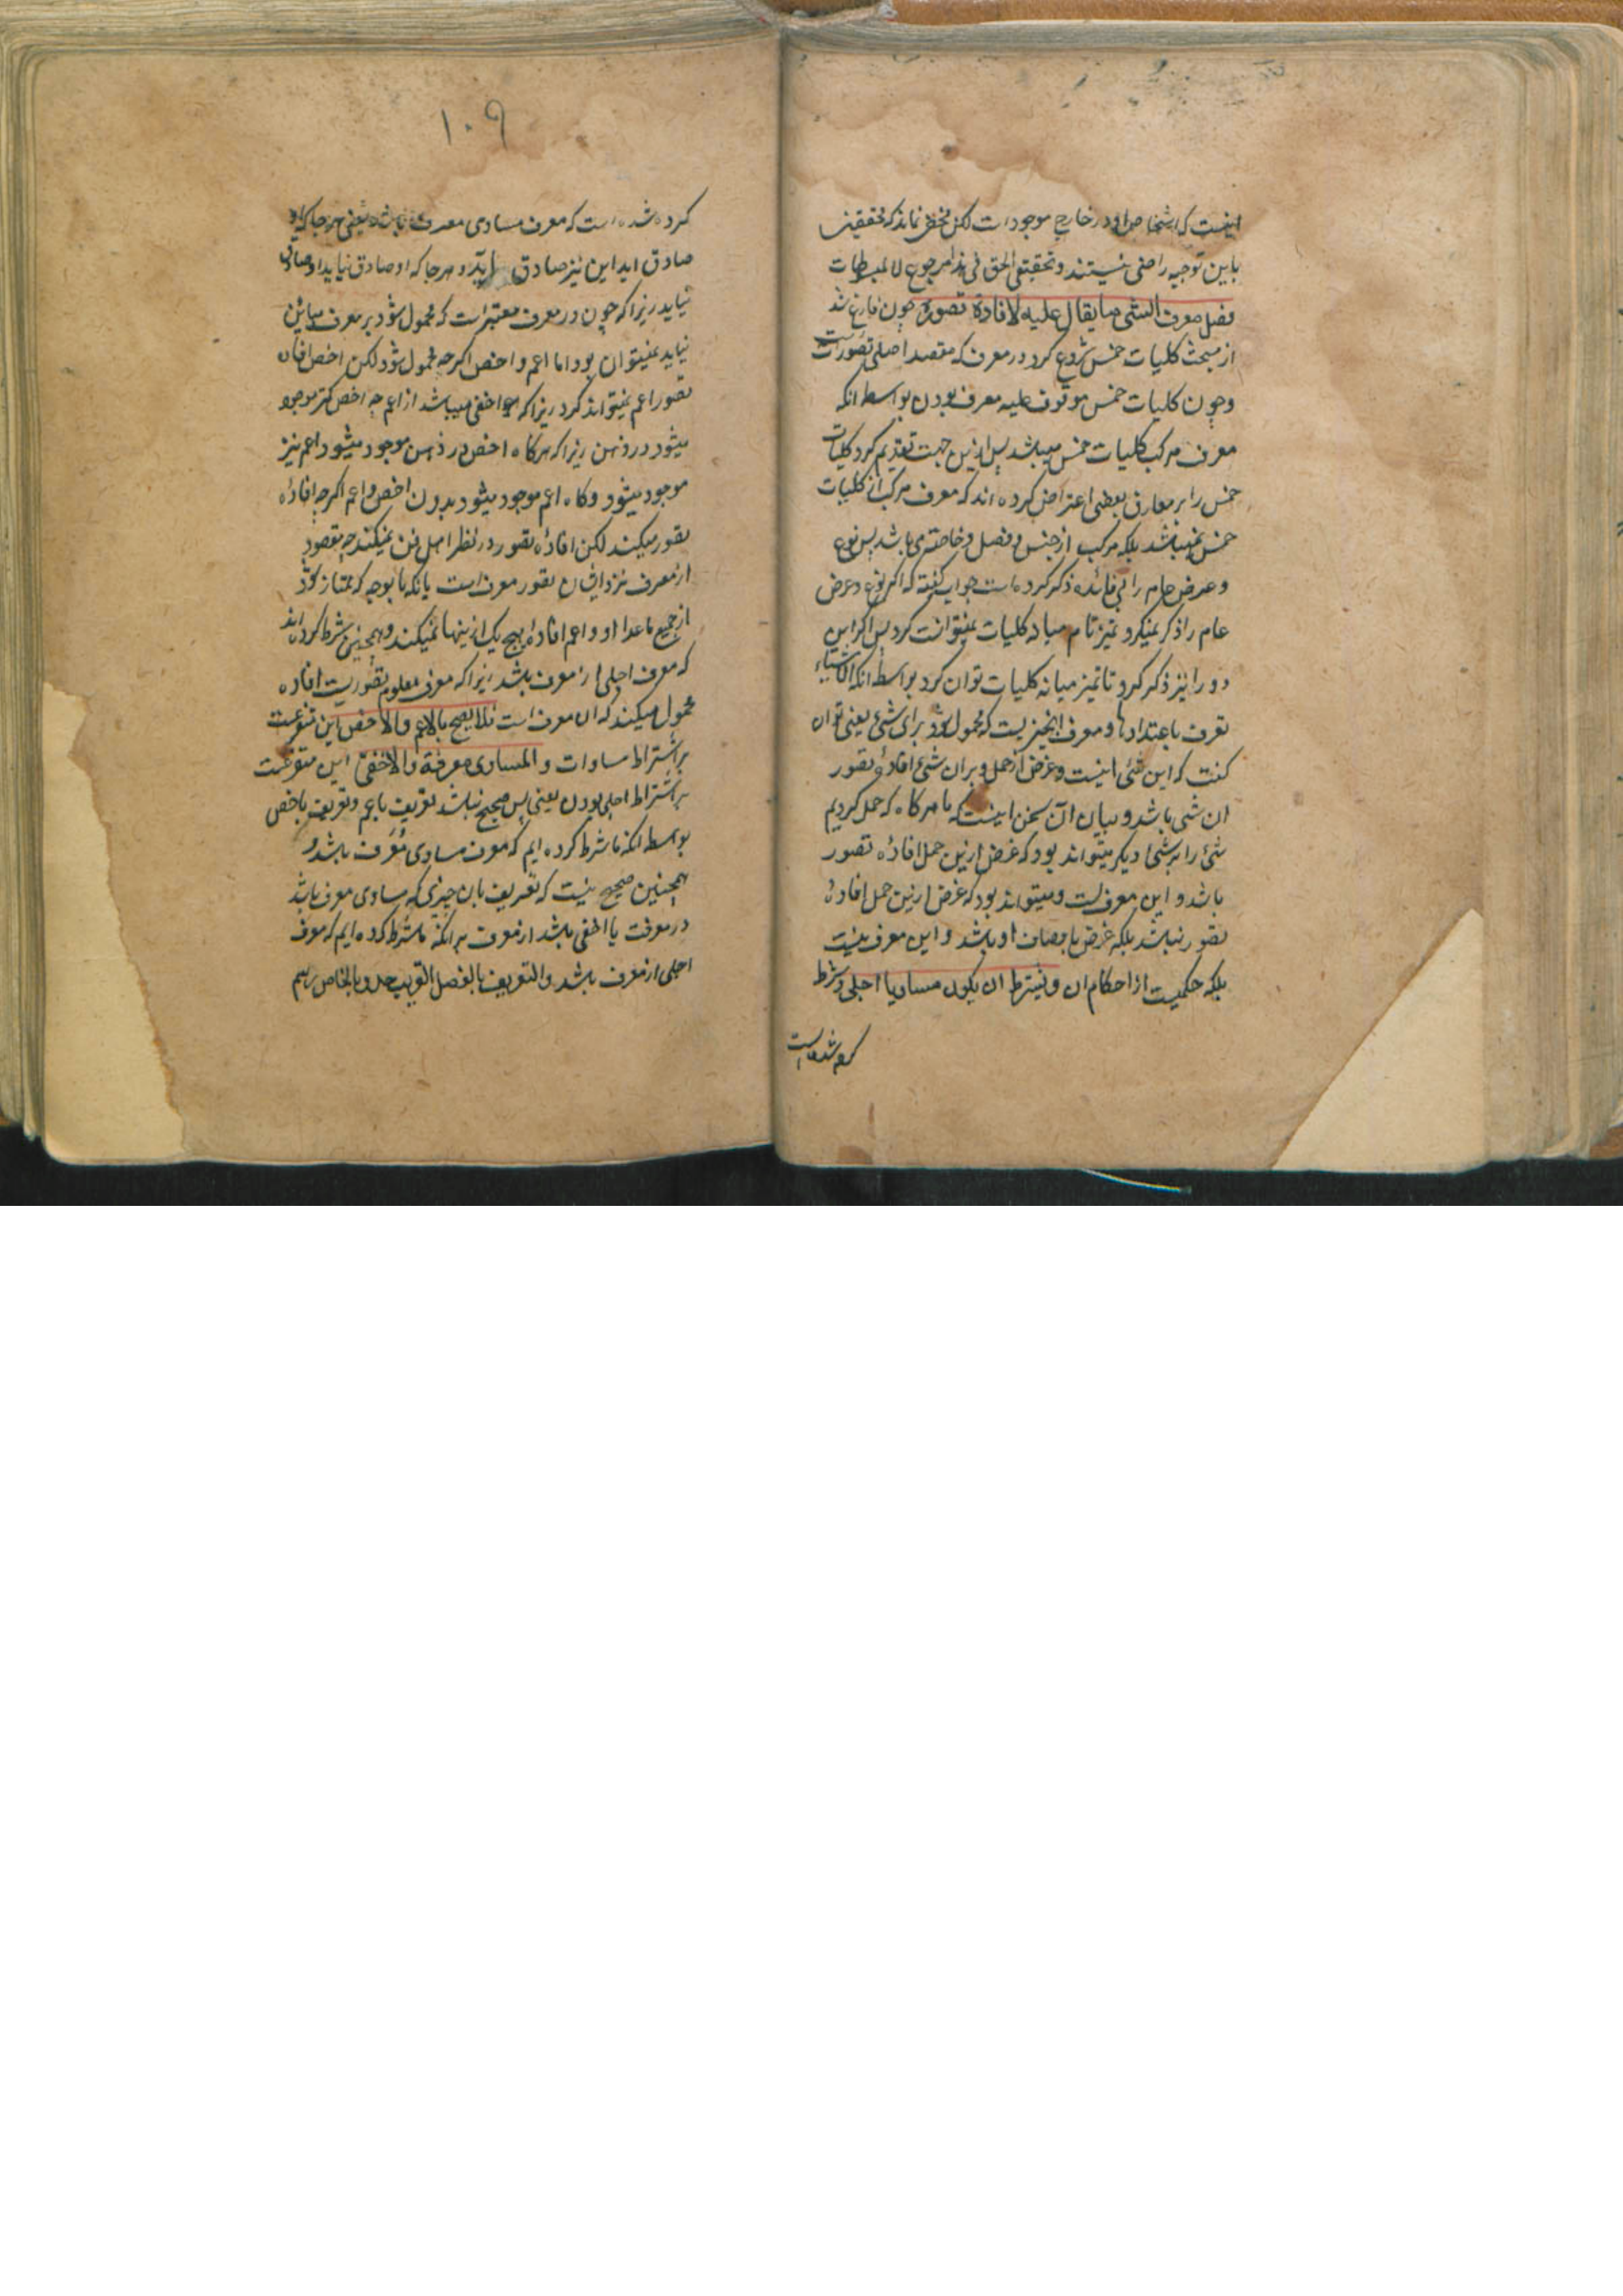 اینست که اشخاص او در خارج موجود است لکن مخفی نماند که محققین
باین توجیه راضی نیستند و تحقیق الحق فی هذا مرجوع الی المبسوطات
فصل معرف الشی ما یقال علیه لافادة تصوره چون فارغ شد
از مبحث کلیات خمس شروع کرد در معرف که مقصد اصلی تصوراتست
و چون کلیات خمس موقوف علیه معرف بودن بواسطه انکه
معرف مرکب کلیات خمس میباشد پس ازین جهت تقدیم کرد کلیات
خمس را بر معارف بعضی اعتراض کرده اند که معرف مرکب از کلیات
خمس نمیباشد بلکه مرکب از جنس و فصل و خاصه می باشد پس نوع
و عرض عام را بی فائده ذکر کرده است جواب گفته که اکر نوع و عرض
عام را ذکر نمیکرد تمیز تام میانه کلیات نمیتوانست کرد پس اکر این
دو را نیز ذکر کرد تا تمیز میانه کلیات توان کرد بواسطه انکه الاشیاء
تعرف باضدادها و معرف انچیزیست که محمول شود برای شئ یعنی توان
کفت که این شئی اینست و غرض از حمل و بران شئ افادهٔ تصور
ان شی باشد و بیان آن سخن اینست که ما هر کاه که حمل کردیم
شئ را بر شئ دیکر میتواند بود که غرض ازین حمل افاده تصور
باشد و این معرفست و میتواند بود که غرض ازین حمل افادهٔ
تصور نباشد بلکه غرض باوصاف او باشد و این معرف نیست
بلکه حکمیست از احکام ان و یشترط ان یکون مساویا اجلی و شرط
کرده شده است
۱۰۹
کرده شده است که معرف مساوی معرف باشد یعنی هر جا که او
صادق اید این نیز صادق آید و هر جا که او صادق نیاید او صادق
نیاید زیرا که چون در معرف معتبر است که محمول شود بر معرف مباین
نیاید نمیتوان بود اما اعم و اخص اکرچه محمول شود لکن اخص افاده
تصور اعم نمیتواند کرد زیرا که او اخفی میباشد از اعم چه اخص کمتر موجود
میشود در ذهن زیرا که هر کاه اخص در ذهن موجود میشود اعم نیز
موجود میشود و کاه اعم موجود میشود بدون اخص و اعم اکرچه افادهٔ
تصور میکند لکن افادهٔ تصور در نظر اهل فن نمیکند چه مقصود
از معرف نزد ایشان تصور معرف است یا بکنه یا بوجه که ممتاز شود
از جمیع ماعدا او و اعم افادهٔ هیچ یک ازینها نمیکند و همچنین شرط کرده اند
که معرف اجلی از معرف باشد زیرا که معرف معلوم تصوریست افاده
مجهول میکند که ان معرف است فلا یصح بالاعم و الاخص این متفرعست
بر اشتراط مساوات و المساوی معرفة و الاخفی این متفرعست
بر اشتراط اجلی بودن یعنی پس صحیح نباشد تعریف باعم و تعریف باخص
بواسطه انکه ما شرط کرده ایم که معرف مساوی معرف باشد و
همچنین صحیح نیست که تعریف بان چیزی که مساوی معرف باشد
در معرفت یا اخفی باشد از معرف برانکه ما شرط کرده ایم که معرف
اجلی از معرف باشد و التعریف بالفصل القریب حد و بالخاصه رسم